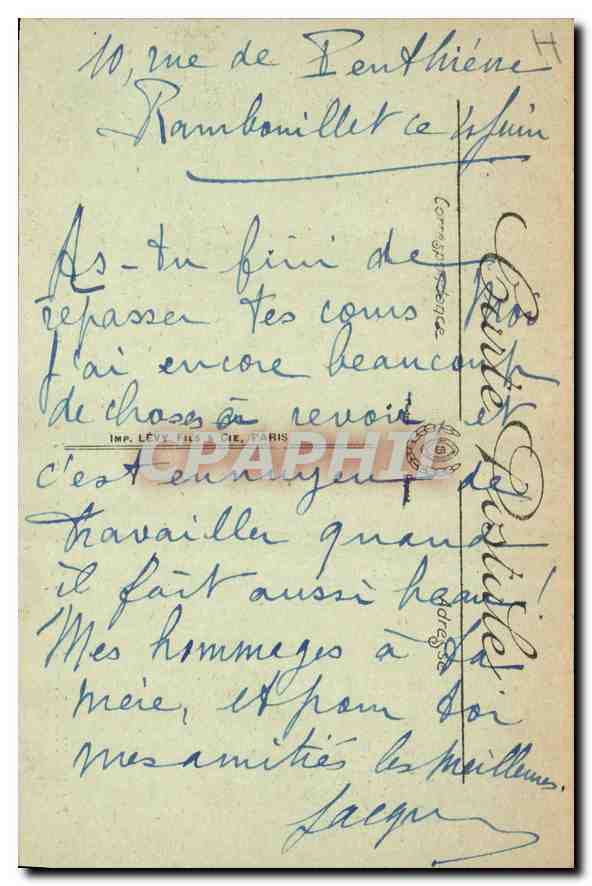 H
10, rue de Penthièvre
Rambouillet ce Juin
As-tu fini de
repasser tes cours
j'ai encore beaucoup
de choses à revoir et
c'est ennuyeux de
travailler quand
il fait aussi beau!
Mes hommages à ta
mère, et pour toi
mes amitiés les meilleures.
Jacques
Carte Postale
Correspondance
Adresse
IMP. LÉVY FILS & CIE, PARIS
CPAPHIL